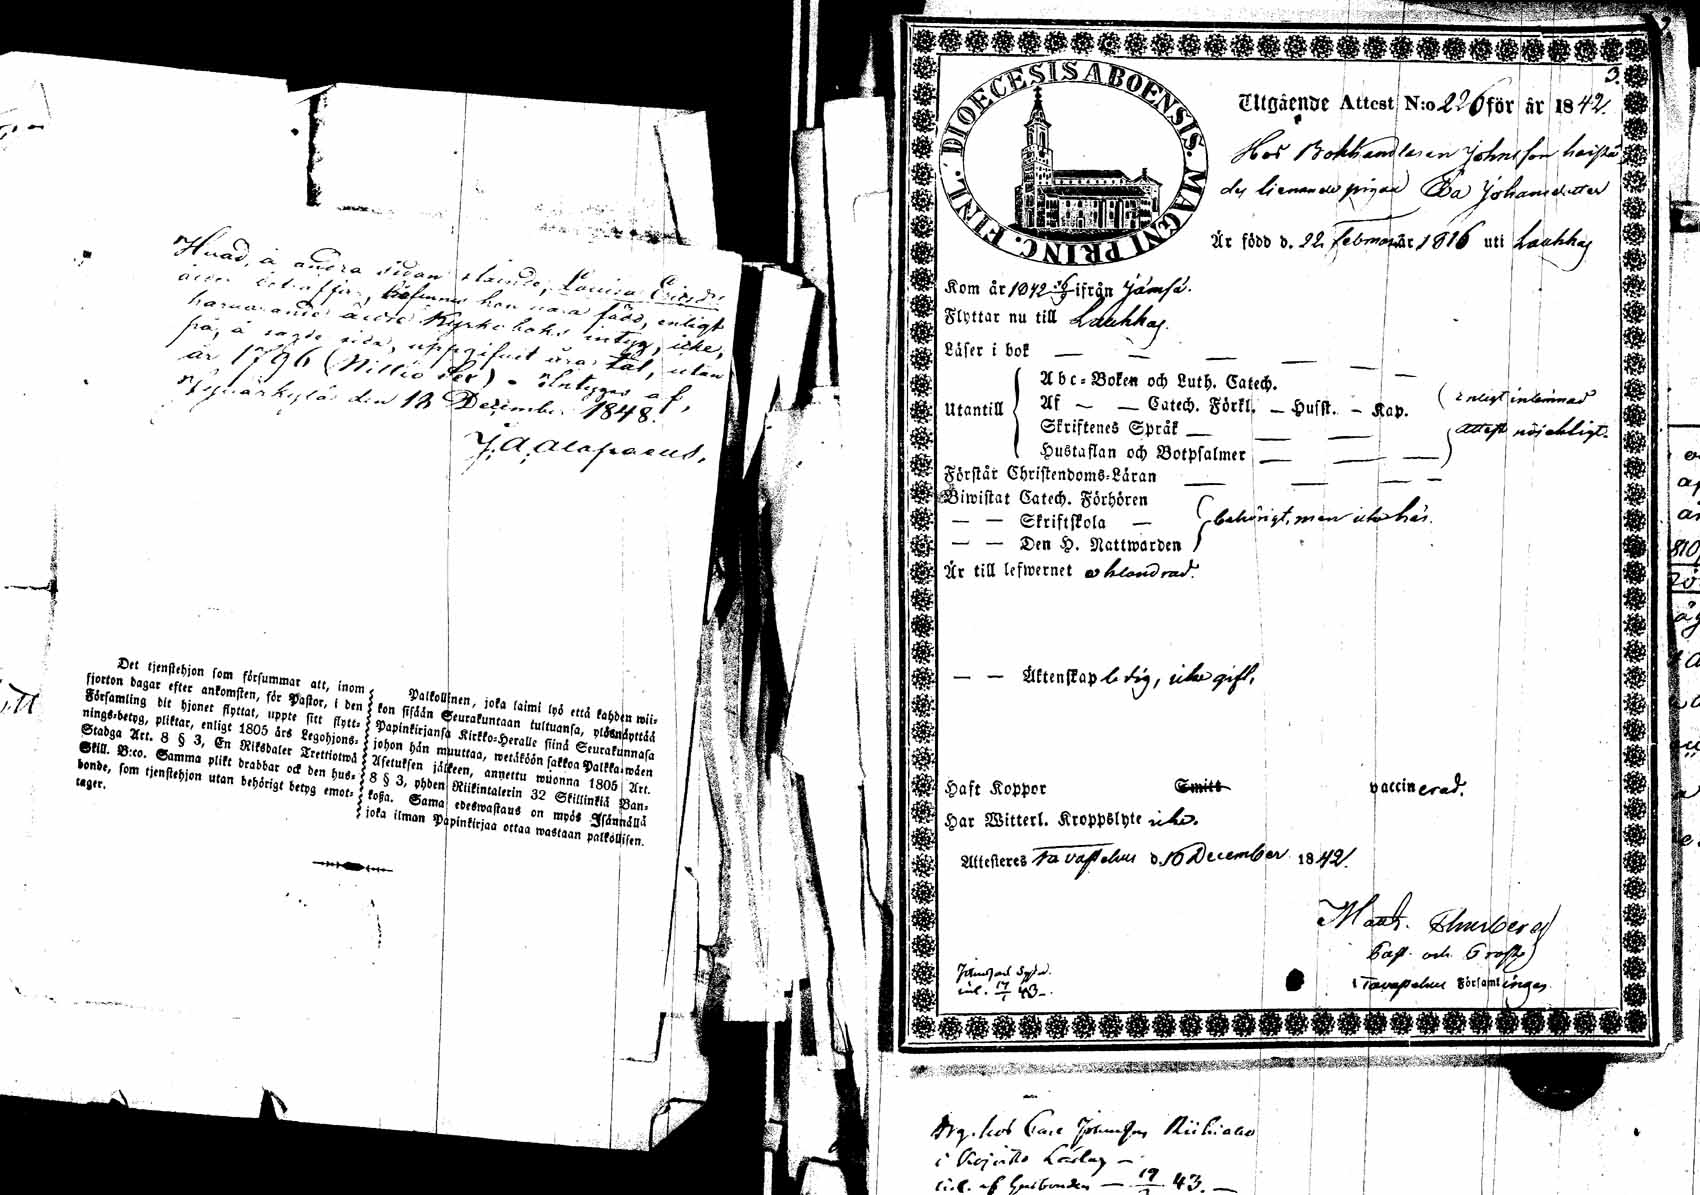 Hvad, å andra sidan stående, Lovisa Ericsd:r
ålder beträffar, befinnes hon vara född, enligt
härvarande äldre Kyrkoboks intyg, icke,
på, å sagde sida, uppgifvit åra-tal, utan
år 1796 (Nittio Sex) - Intygas af,
den 18 December 1848.
Det tjenstehjon som försummar att, inom
fjorton dagar efter ankomsten, för Pastor, i den
Församling dit hjonet flyttat, uppte sitt flytt-
nings-betyg, pliktar, enligt 1805 års Legohjons-
Stadga Art. 8 § 3, En Riksdaler Trettiotwå
Skill. B:co. Samma plikt drabbar ock den hus-
bonde, som tjenstehjon utan behörigt betyg emot-
tager.
Palkollinen, joka laimi lyö että kahden wii-
kon sisään Seurakuntaan tultuansa, ylösnäyttää
Papinkirjansa Kirkko-Heralle siinä Seurakunnasa
johon hän muuttaa, wetäköön sakkoa Palkka-wäen
Asetuksen jälkeen, annettu wuonna 1805 Art.
8 § 3, yhden Riikintalerin 32 Skillinkiä Ban-
kosa. Sama edeswastaus on myös Isännällä
joka ilman Papinkirjaa ottaa wastaan palkollisen.
FINL. DIOECESIS ABOENSIS. MAGNI PRINC.
3.
Utgående Attest N:o 226 för år 1842.
Hos Bokhandlaren Johnsson härstä
des tienande pigan Eva Johansdotter
Är född d. 22 Februari år 1816 uti Laukkas
Kom år 1842 ifrån Jämsä.
Flyttar nu till Laukkas.
Läser i bok — — — — —
Utantill
Abc-Boken och Luth. Catech.
Af — — Catech. Förkl. — Husst. — Kap.
Skriftenes Språk — — —
Hustaflan och Botpsalmer — — —
enligt inlemnad
attest nöjaktigt.
Förstår Christendoms-Läran — — — —
Biwistat Catech. Förhören
— — Skriftskola —
— — Den H. Nattwarden
behörigt, men icke här.
Är till lefwernet oklandrad.
— — Äktenskap ledig, icke gift.
Haft Koppor Smitt vaccinerad.
Har Witterl. Kroppslyte icke.
Attesteres Tavastehus d. 16 December 1842.
Past. och Prost
i Tavastehus Församlingar
inl. 17/1 43.
i
inl. af Husbonden — 19 43. —